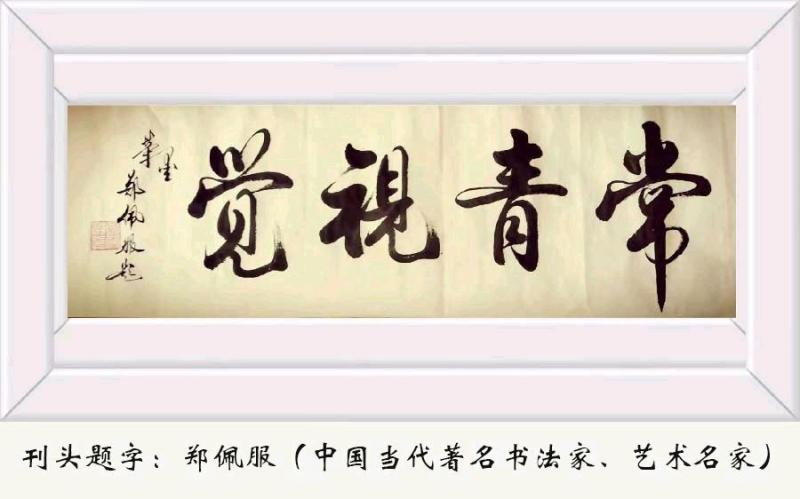 常青視覺
華墨
郑佩服题
刊头题字：郑佩服（中国当代著名书法家、艺术名家）